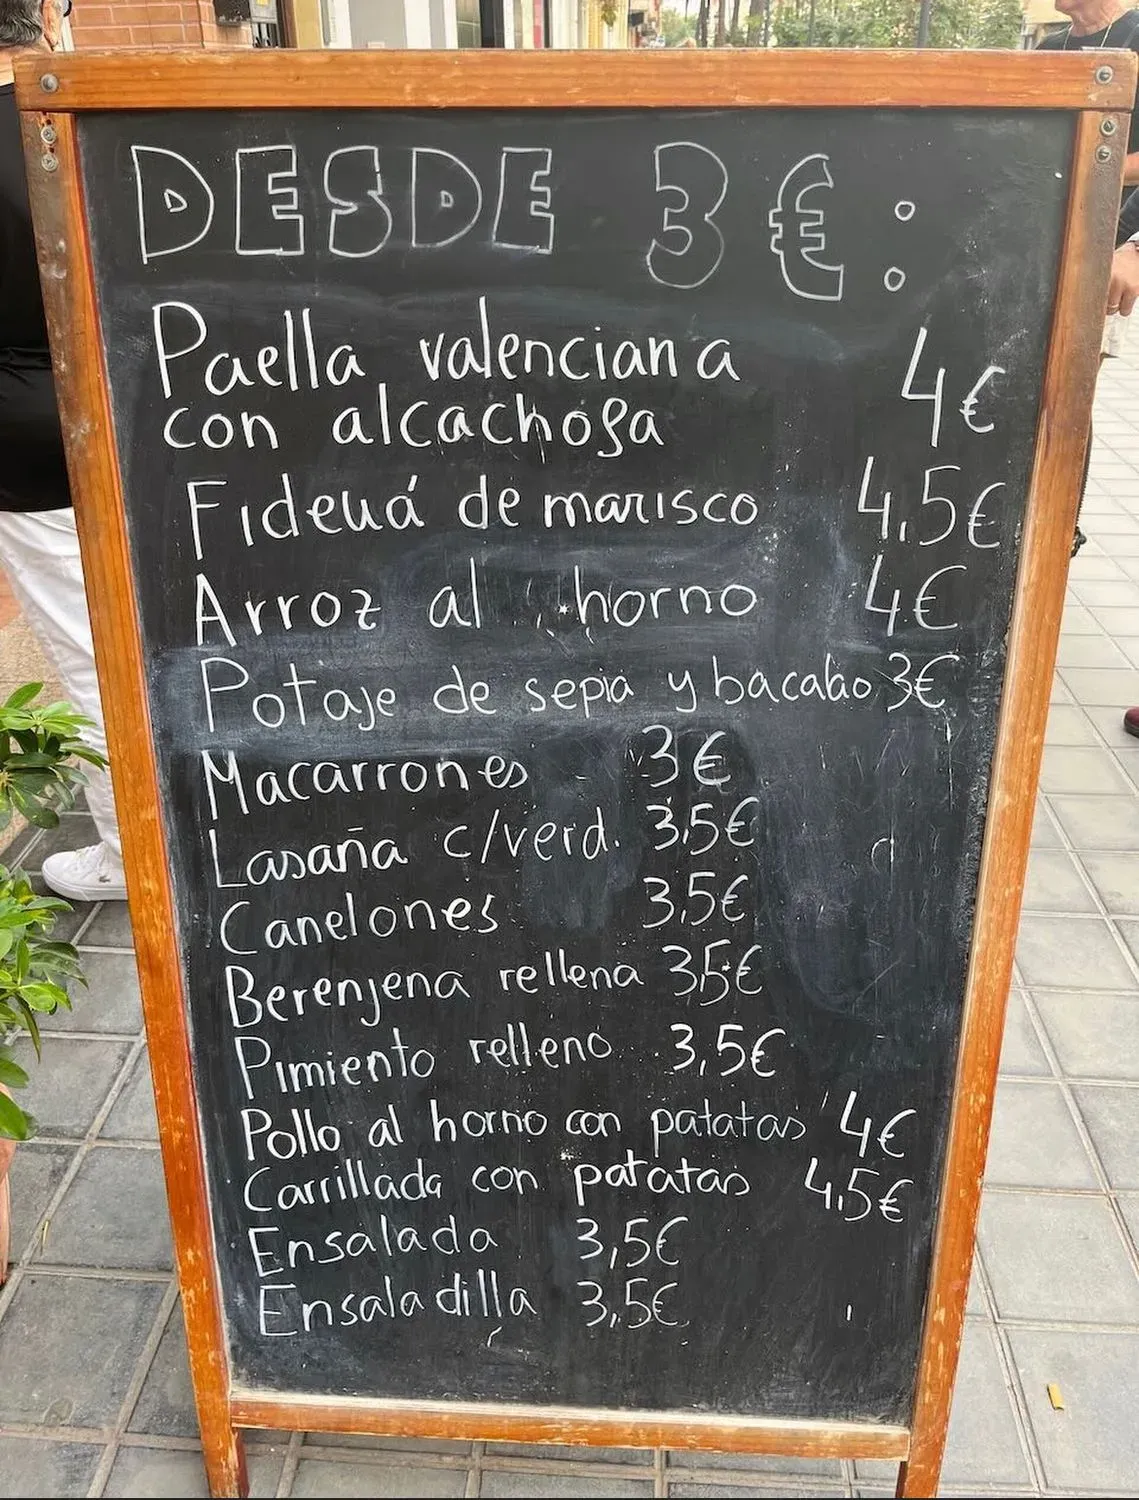 DESDE 3€:
Paella valenciana
con alcachofa 4€
Fideuá de marisco 4,5€
Arroz al horno 4€
Potaje de sepia y bacalao 3€
Macarrones 3€
Lasaña c/verd. 3,5€
Canelones 3,5€
Berenjena rellena 3,5€
Pimiento relleno 3,5€
Pollo al horno con patatas 4€
Carrillada con patatas 4,5€
Ensalada 3,5€
Ensaladilla 3,5€